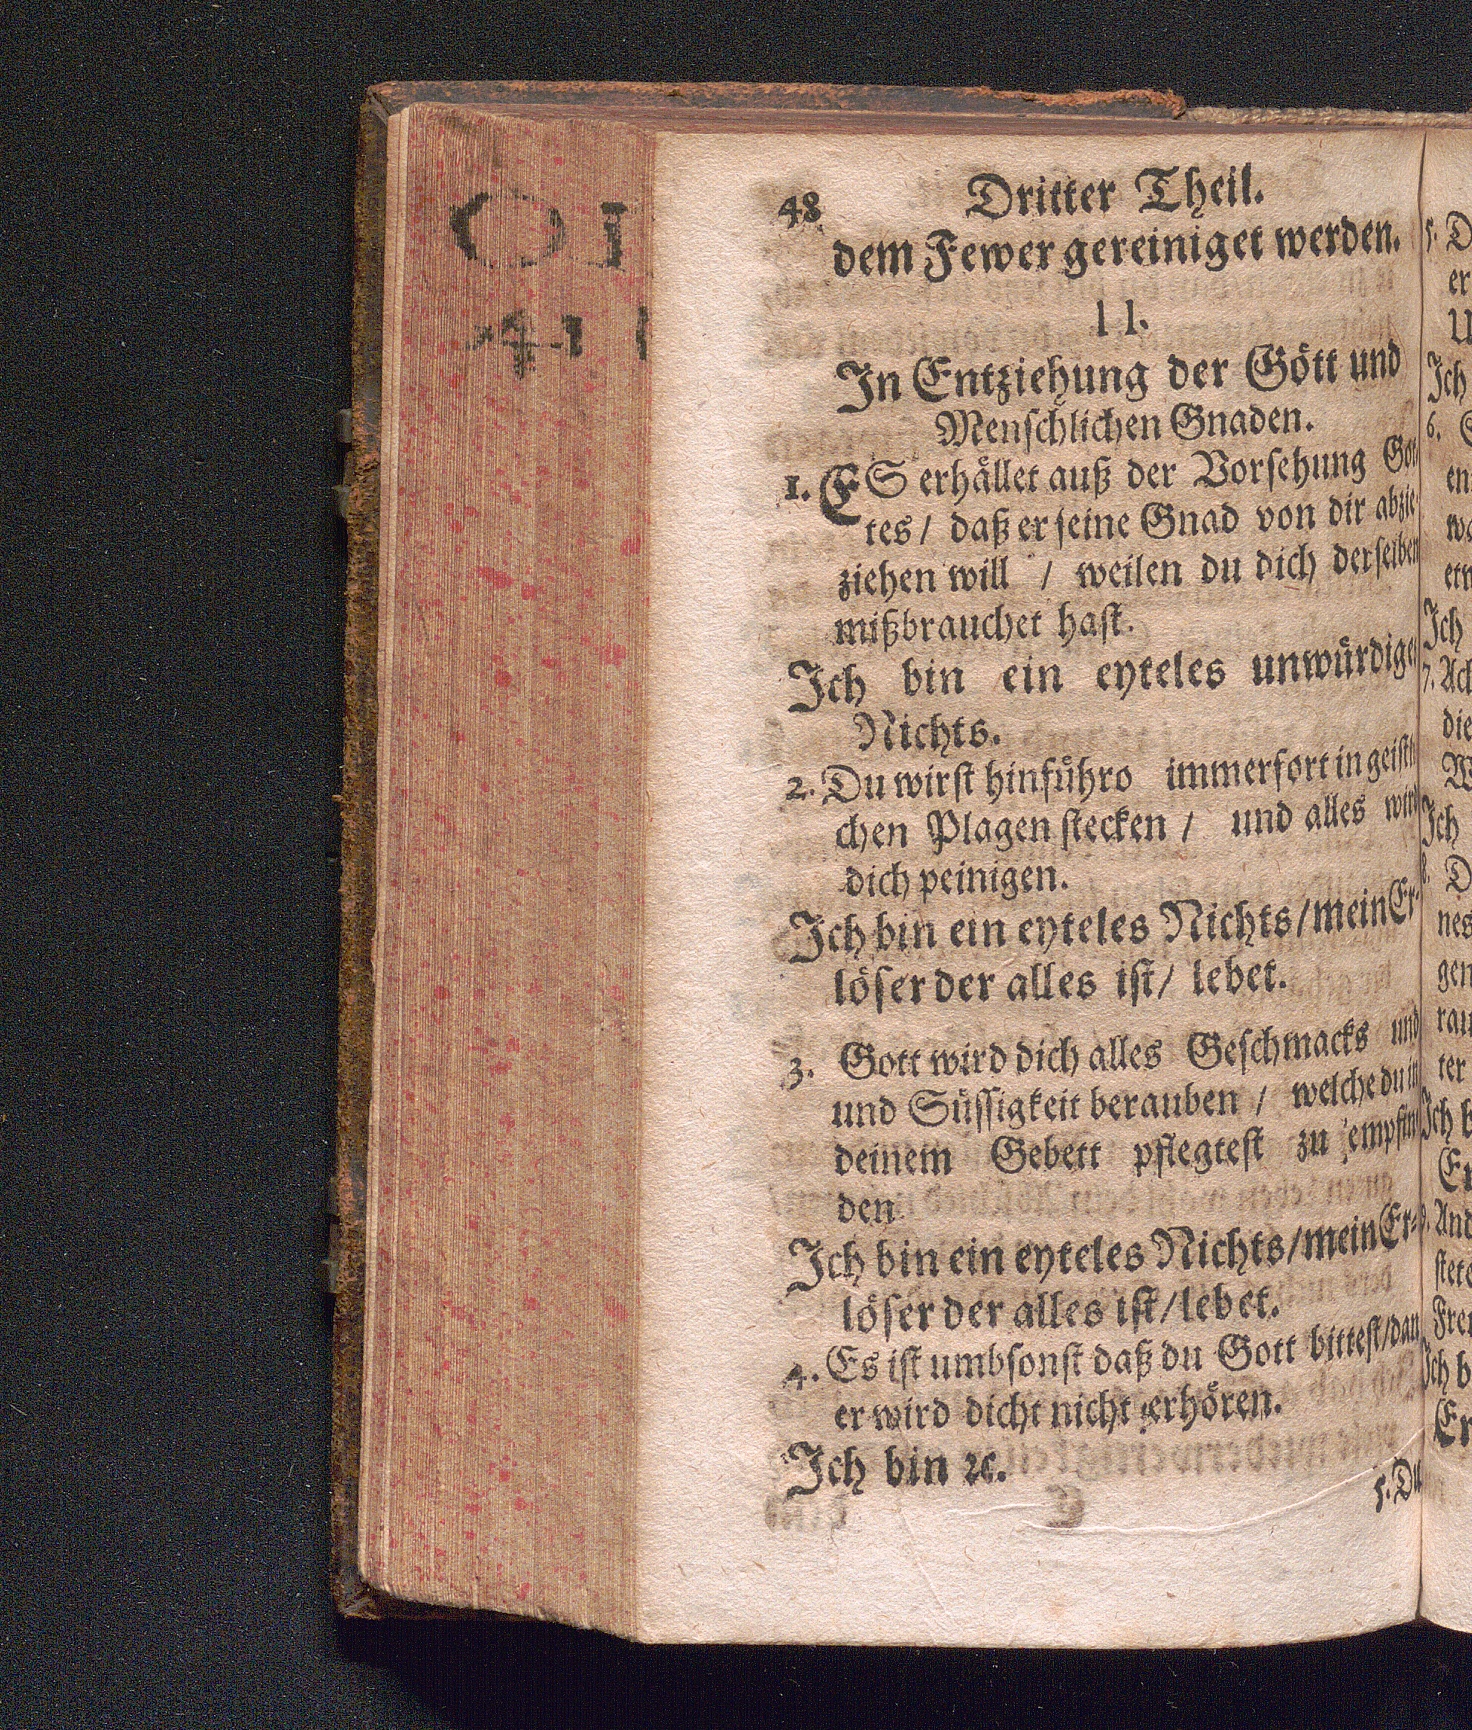 48 Dritter Theil.
dem Fewer gereiniget werden.
II.
In Entziehung der Gött und
Menschlichen Gnaden.
1. ES erhället auß der Vorsehung Got-
tes / daß er seine Gnad von dir abzie-
ziehen will / weilen du dich derselben
mißbrauchet hast.
Ich bin ein eyteles unwürdiges
Nichts.
2. Du wirst hinführo immerfort in geistli-
chen Plagen stecken / und alles wird
dich peinigen.
Ich bin ein eyteles Nichts / mein Er-
löser der alles ist / lebet.
3. Gott wird dich alles Geschmacks und
und Süssigkeit berauben / welche du in
deinem Gebett pflegtest zu empfin-
den
Ich bin ein eyteles Nichts / mein Er-
löser der alles ist / lebet.
4. Es ist umbsonst daß du Gott bittest / dan
er wird dicht nicht erhören.
Ich bin ꝛc.
5. Du